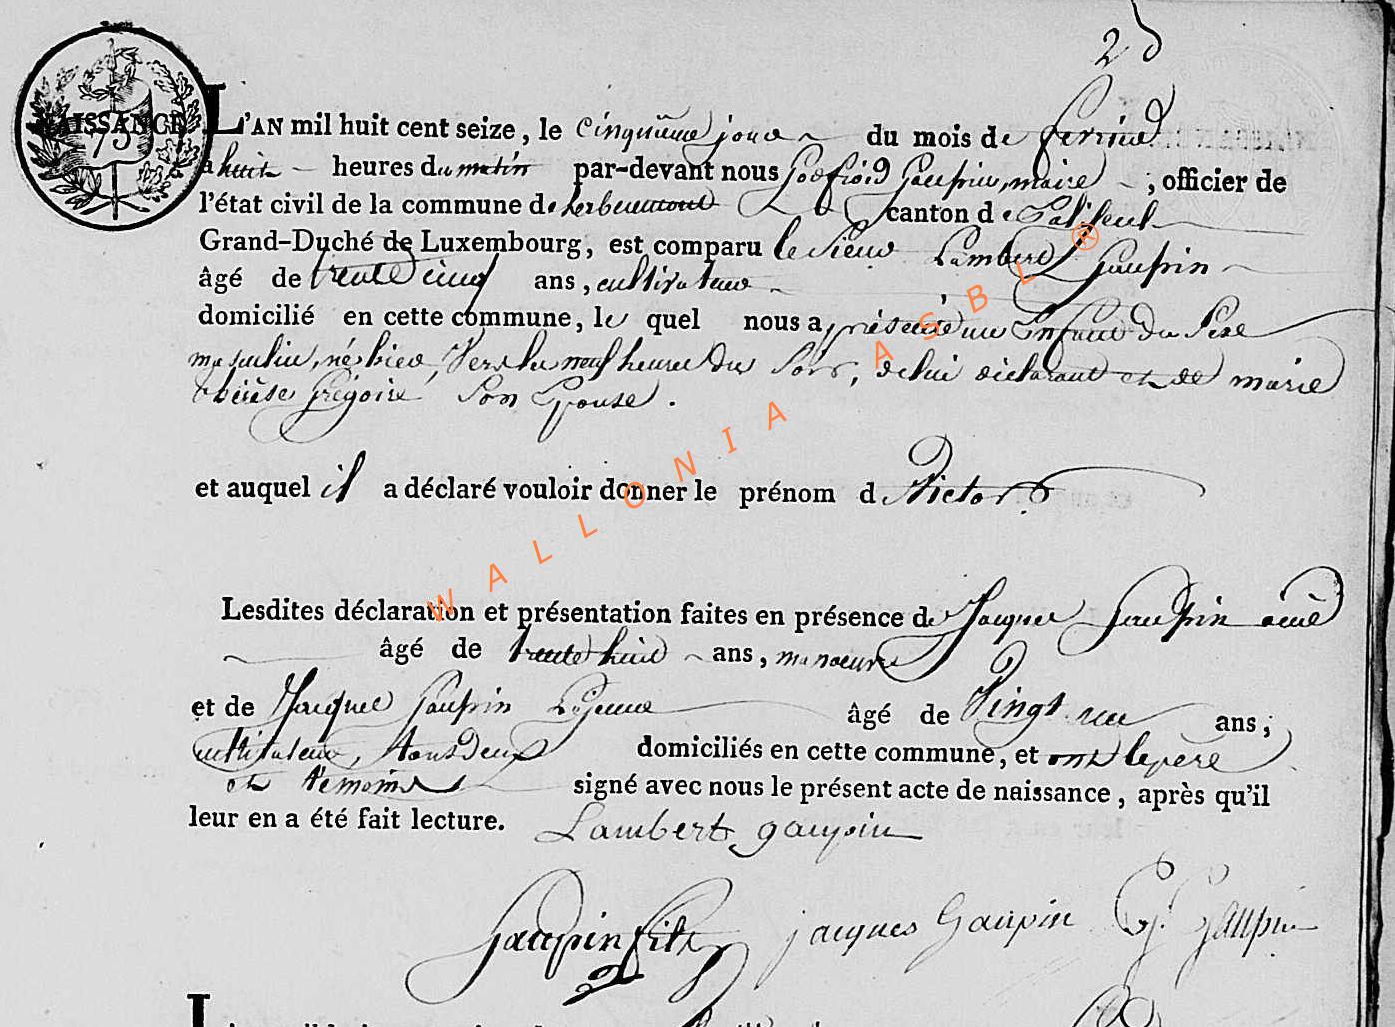 2
NAISSANCE
75
L'AN mil huit cent seize, le cinquième jour du mois de février
à huit heures du matin par-devant nous Godfroid Gaupin, maire, officier de
l'état civil de la commune de herbeumont canton de Paliseul
Grand-Duché de Luxembourg, est comparu le Sieur Lambert Gaupin
âgé de trente cinq ans, cultivateur
domicilié en cette commune, lequel nous a présenté un Enfant du Sexe
masculin, né hier, Vers les neuf heures du Soir, de lui déclarant et de marie
thérèse Grégoire Son Epouse.
et auquel il a déclaré vouloir donner le prénom de Victor
Lesdites déclaration et présentation faites en présence de Jacques Gaupin ainé
âgé de trente huit ans, manoeuvre
et de Jacques Gaupin Lejeune âgé de Vingt ans;
cultivateur, tous deux domiciliés en cette commune, et ont le père
et témoins signé avec nous le présent acte de naissance, après qu'il
leur en a été fait lecture. Lambert gaupin
Gaupin fils jacques Gaupin G. Gaupin
WALLONIA ASBL ®